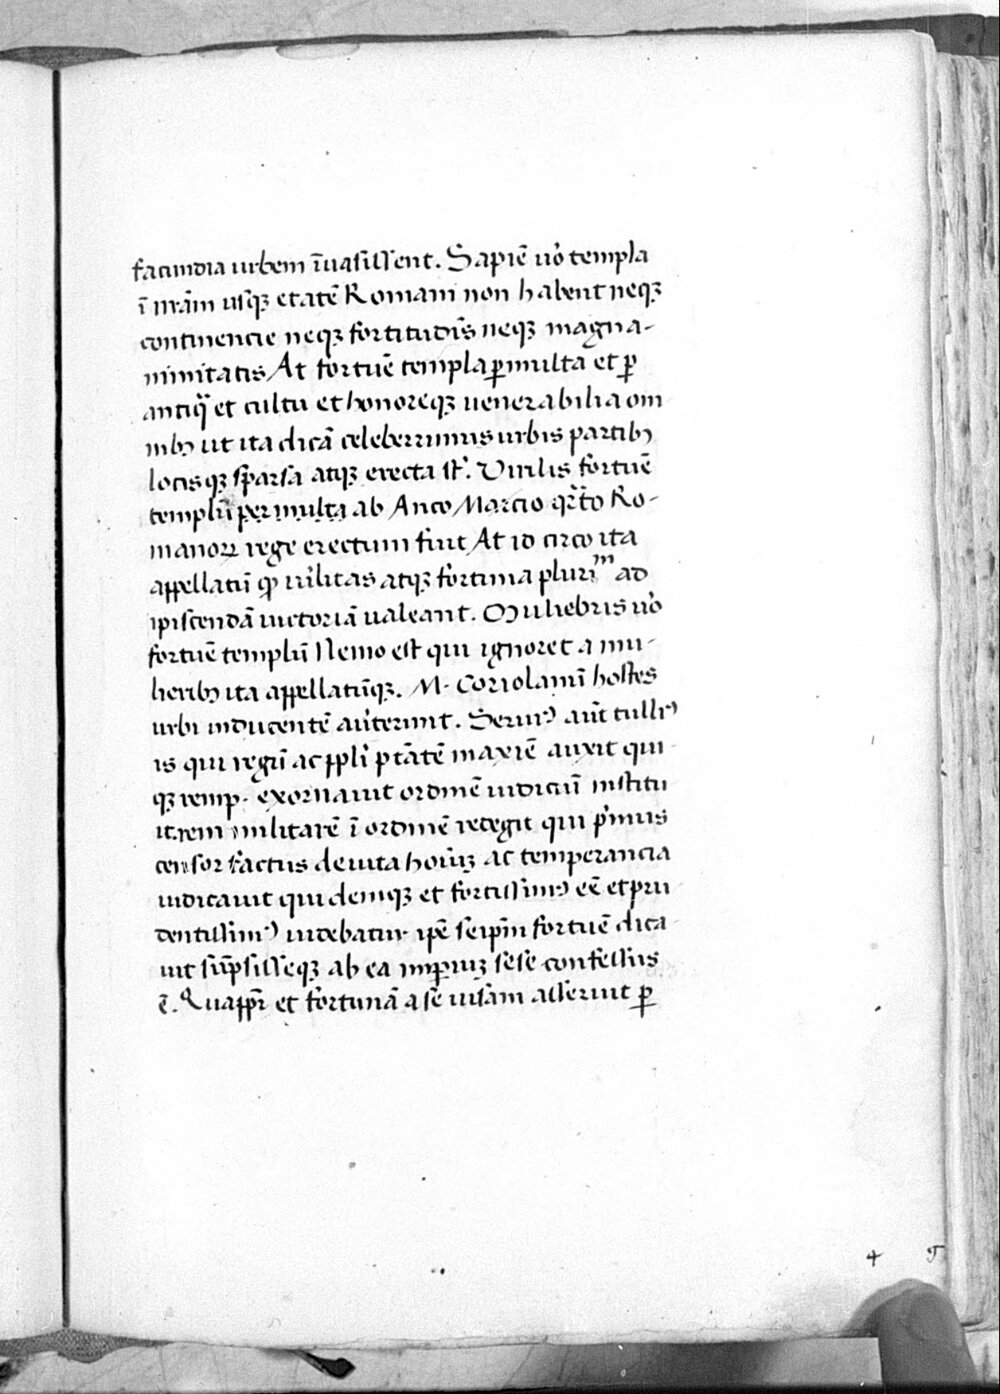 facundia urbem īuasissent. Sapiē uo᷒ templa
ī nr̄am usq₃ etatē Romani non habent neq₃
continencie neq₃ fortitudīs neq₃ magna-
nimitatis At fortuē templa ꝑmulta et ꝑ
antiq̄ et cultu et honoreq₃ uenerabilia om
nib₃ ut ita dicā celeberrimis urbis partib₃
locisq₃ sparsa atq₃ erecta st̄. Virilis fortuē
templū permulta ab Anco Marcio qr̄to Ro-
manoꝝ rege erectum fuit At id circo ita
appellatū ꝙ uirilitas atq₃ fortuna plurīm ad
ipiscendā uictoriā ualeant. Muliebris uo᷒
fortuē templū Nemo est qui ignoret a mu-
lierib₃ ita appellatūq₃. M. Coriolanū hostes
urbi inducentē au᷒terunt. Serui᷒ aūt tulli᷒
is qui regū ac ppl̄i ptātē maxīē auxit qui
q₃ remp. exornauit ordinē iudiciū institu
it. rem militarē ī ordinē redegit qui pͥmus
censor factus de uita hoīuꝫ ac temperancia
iudicauit qui deniq₃ et fortissim᷒ eē et pru
dentissim᷒ uidebatur ipē seipm̄ fortuē dica
uit sūpsisseq₃ ab ea imꝑiuꝫ sese confessus
ē. Quappr̄ et fortunā a se uisam asseruit ꝑ
4